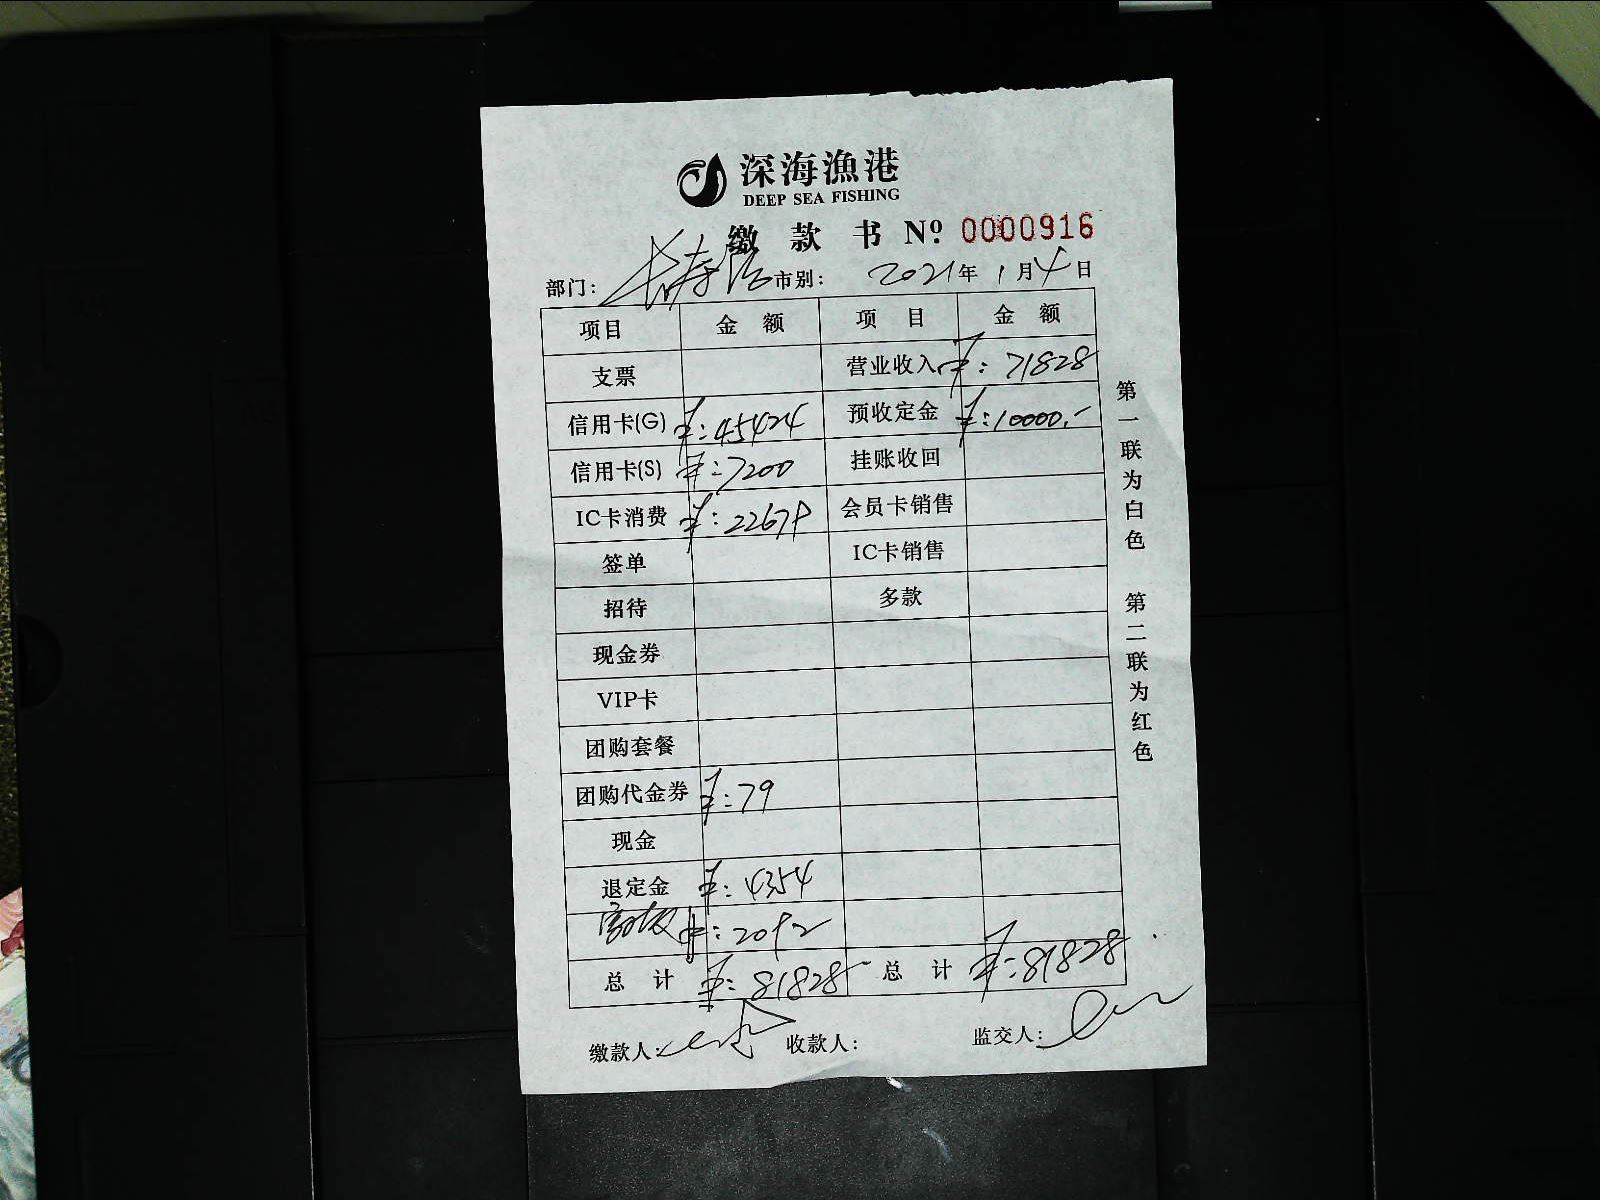 深海漁港
DEEP SEA FISHING
缴款书 Nº. 0000916
部门: 长寿路 市别: 2021年1月4日
项目 金额 项目 金额
支票 营业收入 ¥:71828
信用卡(G) ¥:45424 预收定金 ¥:10000.-
信用卡(S) ¥:7200 挂账收回
IC卡消费 ¥:22679 会员卡销售
签单 IC卡销售
招待 多款
现金券
VIP卡
团购套餐
团购代金券 ¥:79
现金
退定金 ¥:4354
¥:2092
总计 ¥:81828 总计 ¥:81828
缴款人: 收款人: 监交人:
第一联为白色 第二联为红色